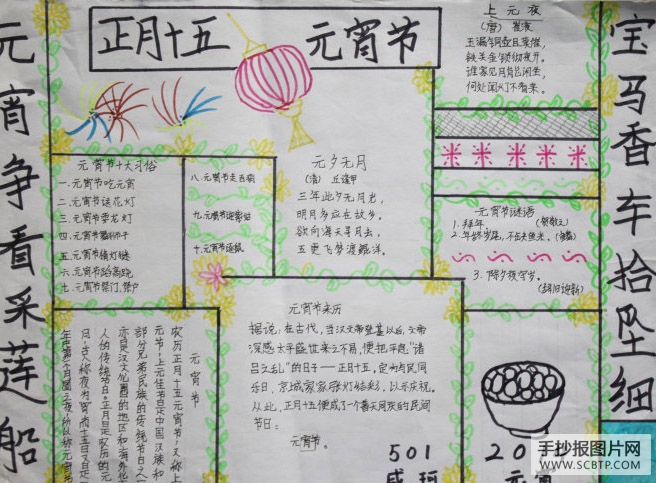 正月十五 元宵节
元宵争看采莲船
宝马香车拾坠细
上元夜
(唐) 崔液
玉漏铜壶且莫催,
铁关金锁彻夜开。
谁家见月能闲坐,
何处闻灯不看来。
元宵节十大习俗
一.元宵节吃元宵
二.元宵节送花灯
三.元宵节耍龙灯
四.元宵节
五.元宵节猜灯谜
六.元宵节踩高跷
七.元宵节祭门、祭户
八.元宵节走百病
九.元宵节迎紫姑
十.元宵节逐鼠
元夕无月
(清) 丘逢甲
三年此夕无月光,
明月多应在故乡。
欲向海天寻月去,
五更飞梦渡鲲洋。
元宵节谜语
1.拜年。(贺敬之)
2.
3.除夕夜守岁。
(辞旧迎新)
元宵节来历
据说,在古代,当汉文帝登基以后,文帝
深感太平盛世来之不易,便把平息“诸
吕之乱”的日子——正月十五,定为与民同
乐日,京城家家张灯结彩,以示庆祝。
从此,正月十五便成了一个普天同庆的民间
节日:
元宵节。
元宵节
农历正月十五元宵节,又称上
元节,上元佳节是中国汉族和
部分兄弟民族的传统节日之一
亦是汉文化圈的地区和海外华
人的传统节日。正月是农历的元
月,古人称夜为宵,而十五日又是一
年中第一个月圆之夜,所以称元宵节
501
手抄报图片网
www.SCBTP.com